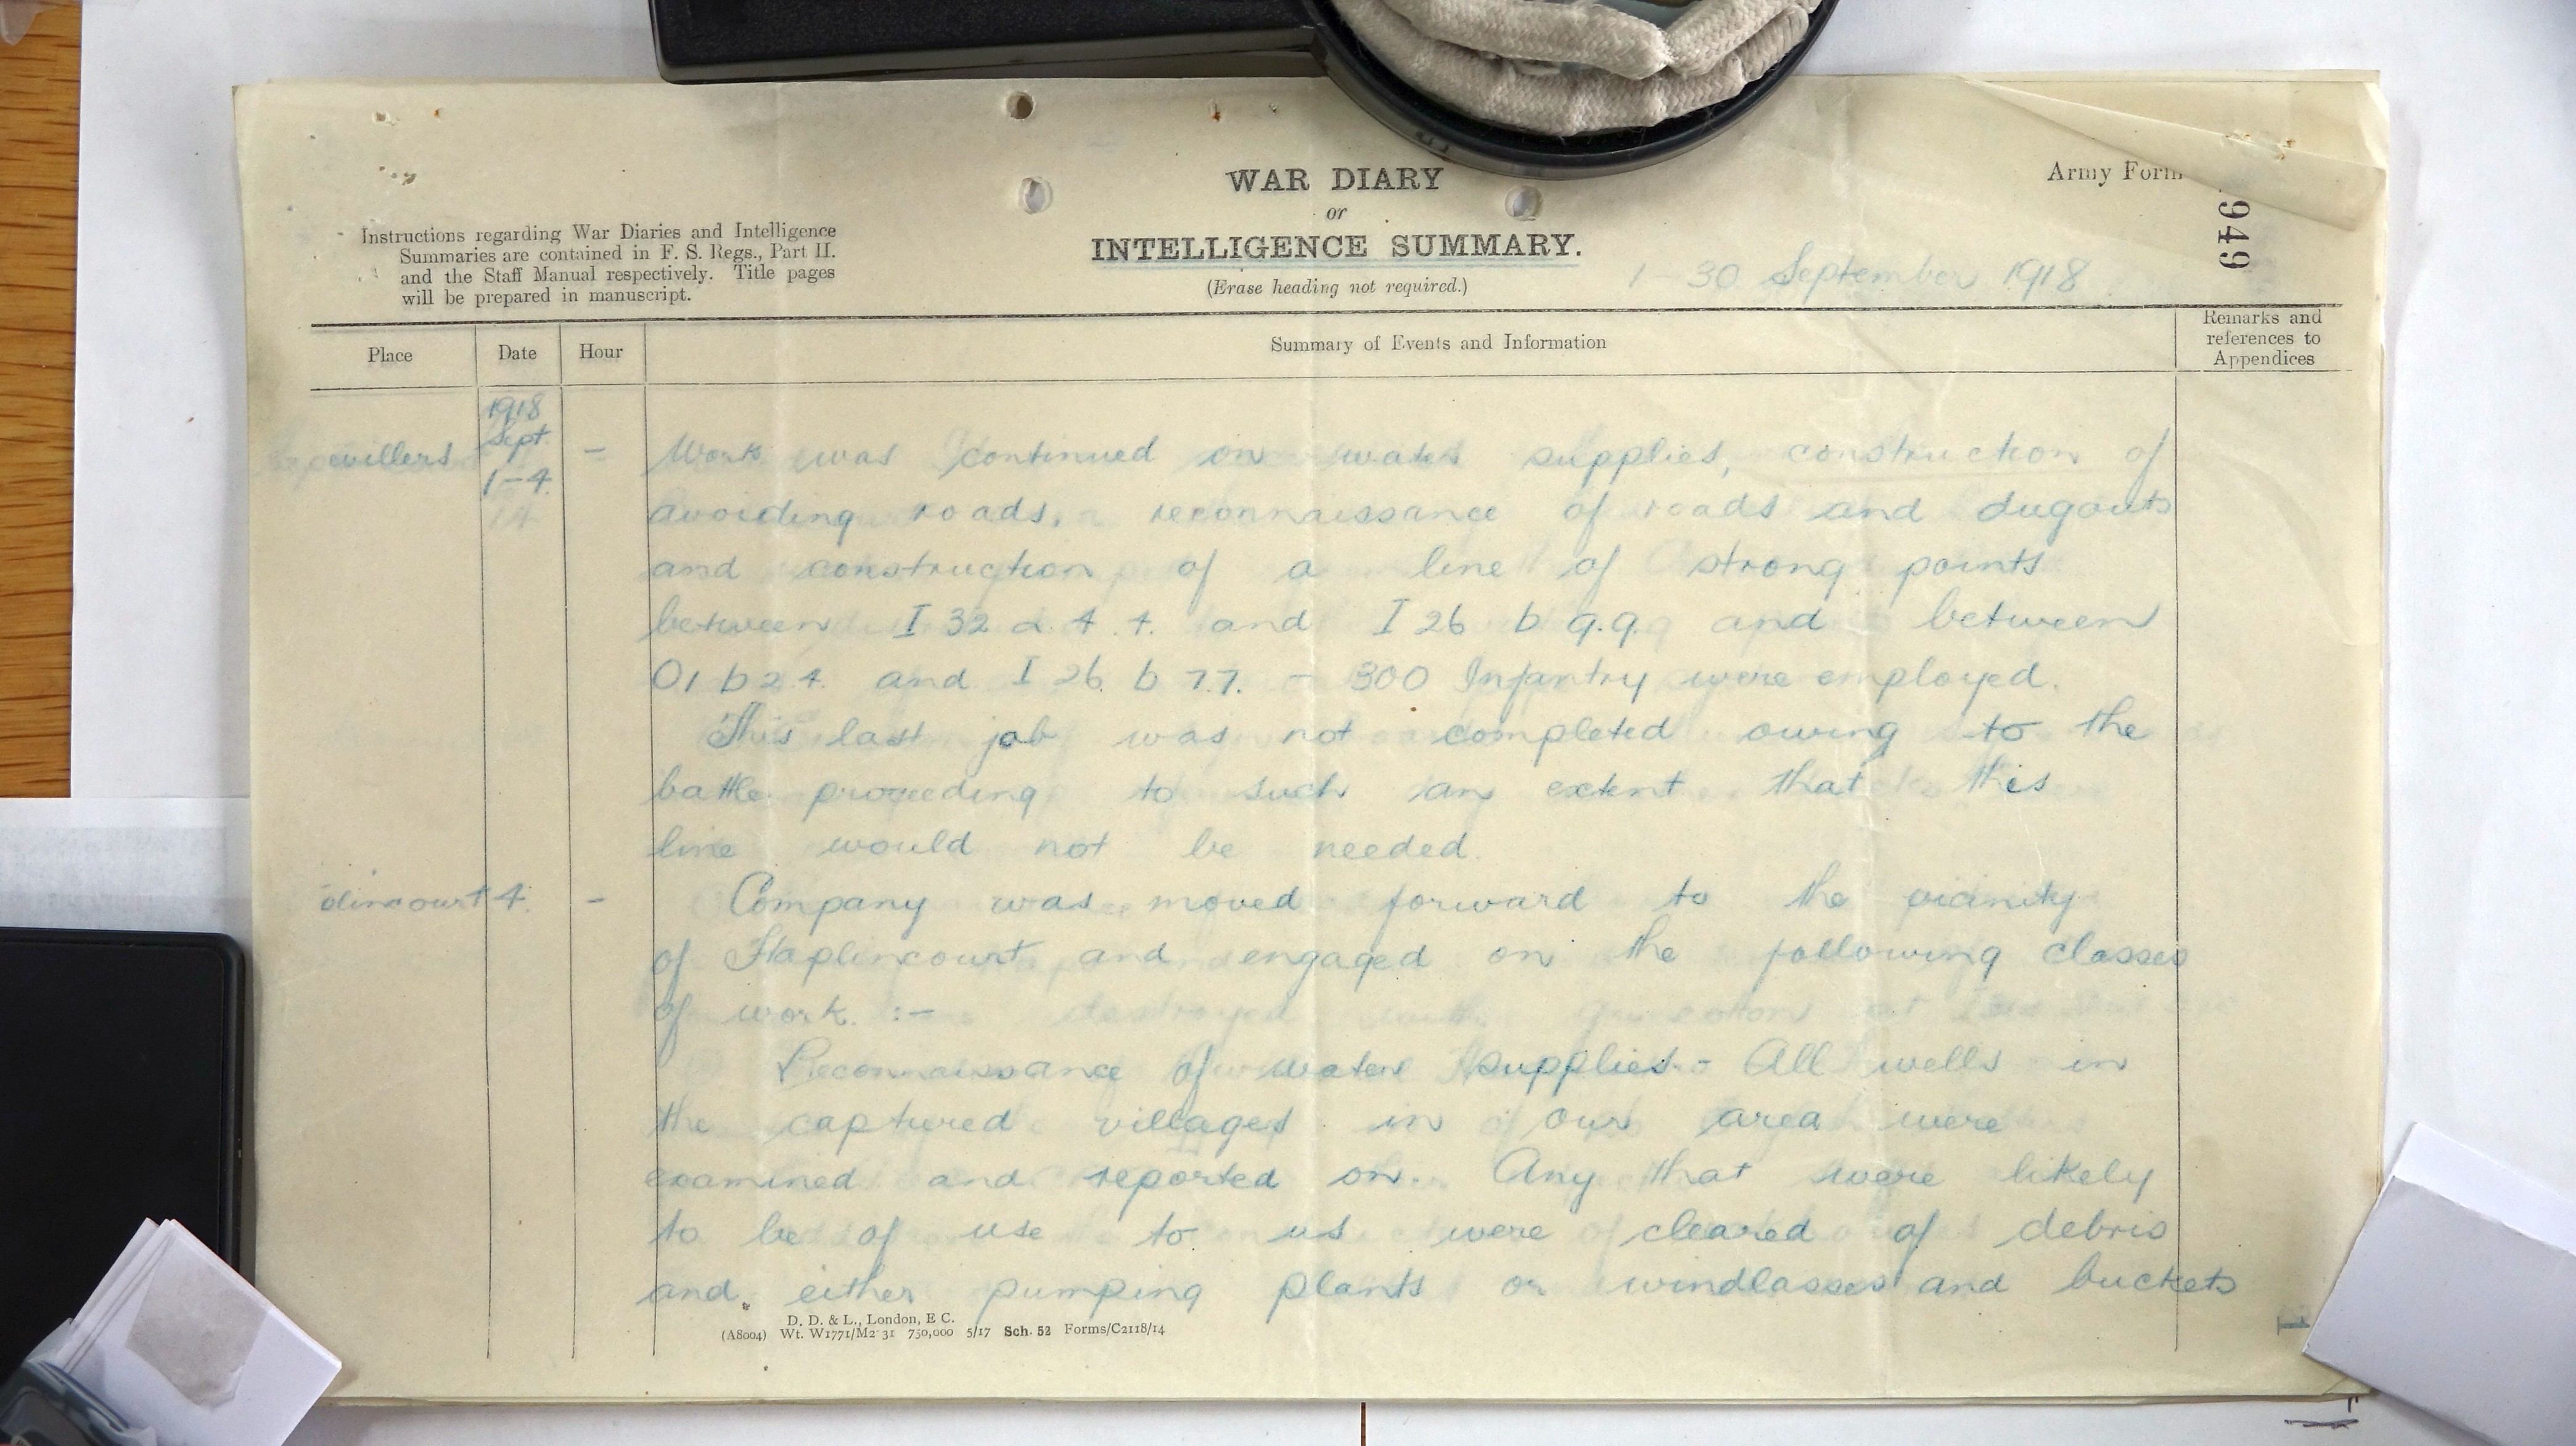 WAR DIARY
or
INTELLIGENCE SUMMARY.
(Erase heading not required.)
Army Form
949
Instructions regarding War Diaries and Intelligence
Summaries are contained in F. S. Regs., Part II.
and the Staff Manual respectively. Title pages
will be prepared in manuscript.
1-30 September 1918
Place
Date
Hour
Summary of Events and Information
Remarks and
references to
Appendices
1918
Sept.
evillers
1-4.
-
Work was continued on water supplies, construction of
avoiding roads, reconnaissance of roads and dugouts
and construction of a line of strong points
between I 32 d. 4. 4. and I 26 b 9.9. and between
O1 b 2 4. and I 26. b 7.7. - 300 Infantry were employed.
This last job was not completed owing to the
battle proceeding to such an extent that this
line would not be needed
lincourt 4. -
Company was moved forward to the vicinity
of Haplincourt and engaged on the following classes
of work. :-
Reconnaissance of water supplies. - All wells in
the captured villages in our area were
examined and reported on. Any that were likely
to be of use to us were cleared of debris
and either pumping plants or windlasses and buckets
D. D. & L., London, E C.
(A8004) Wt. W1771/M2 31 750,000 5/17 Sch. 52 Forms/C2118/14